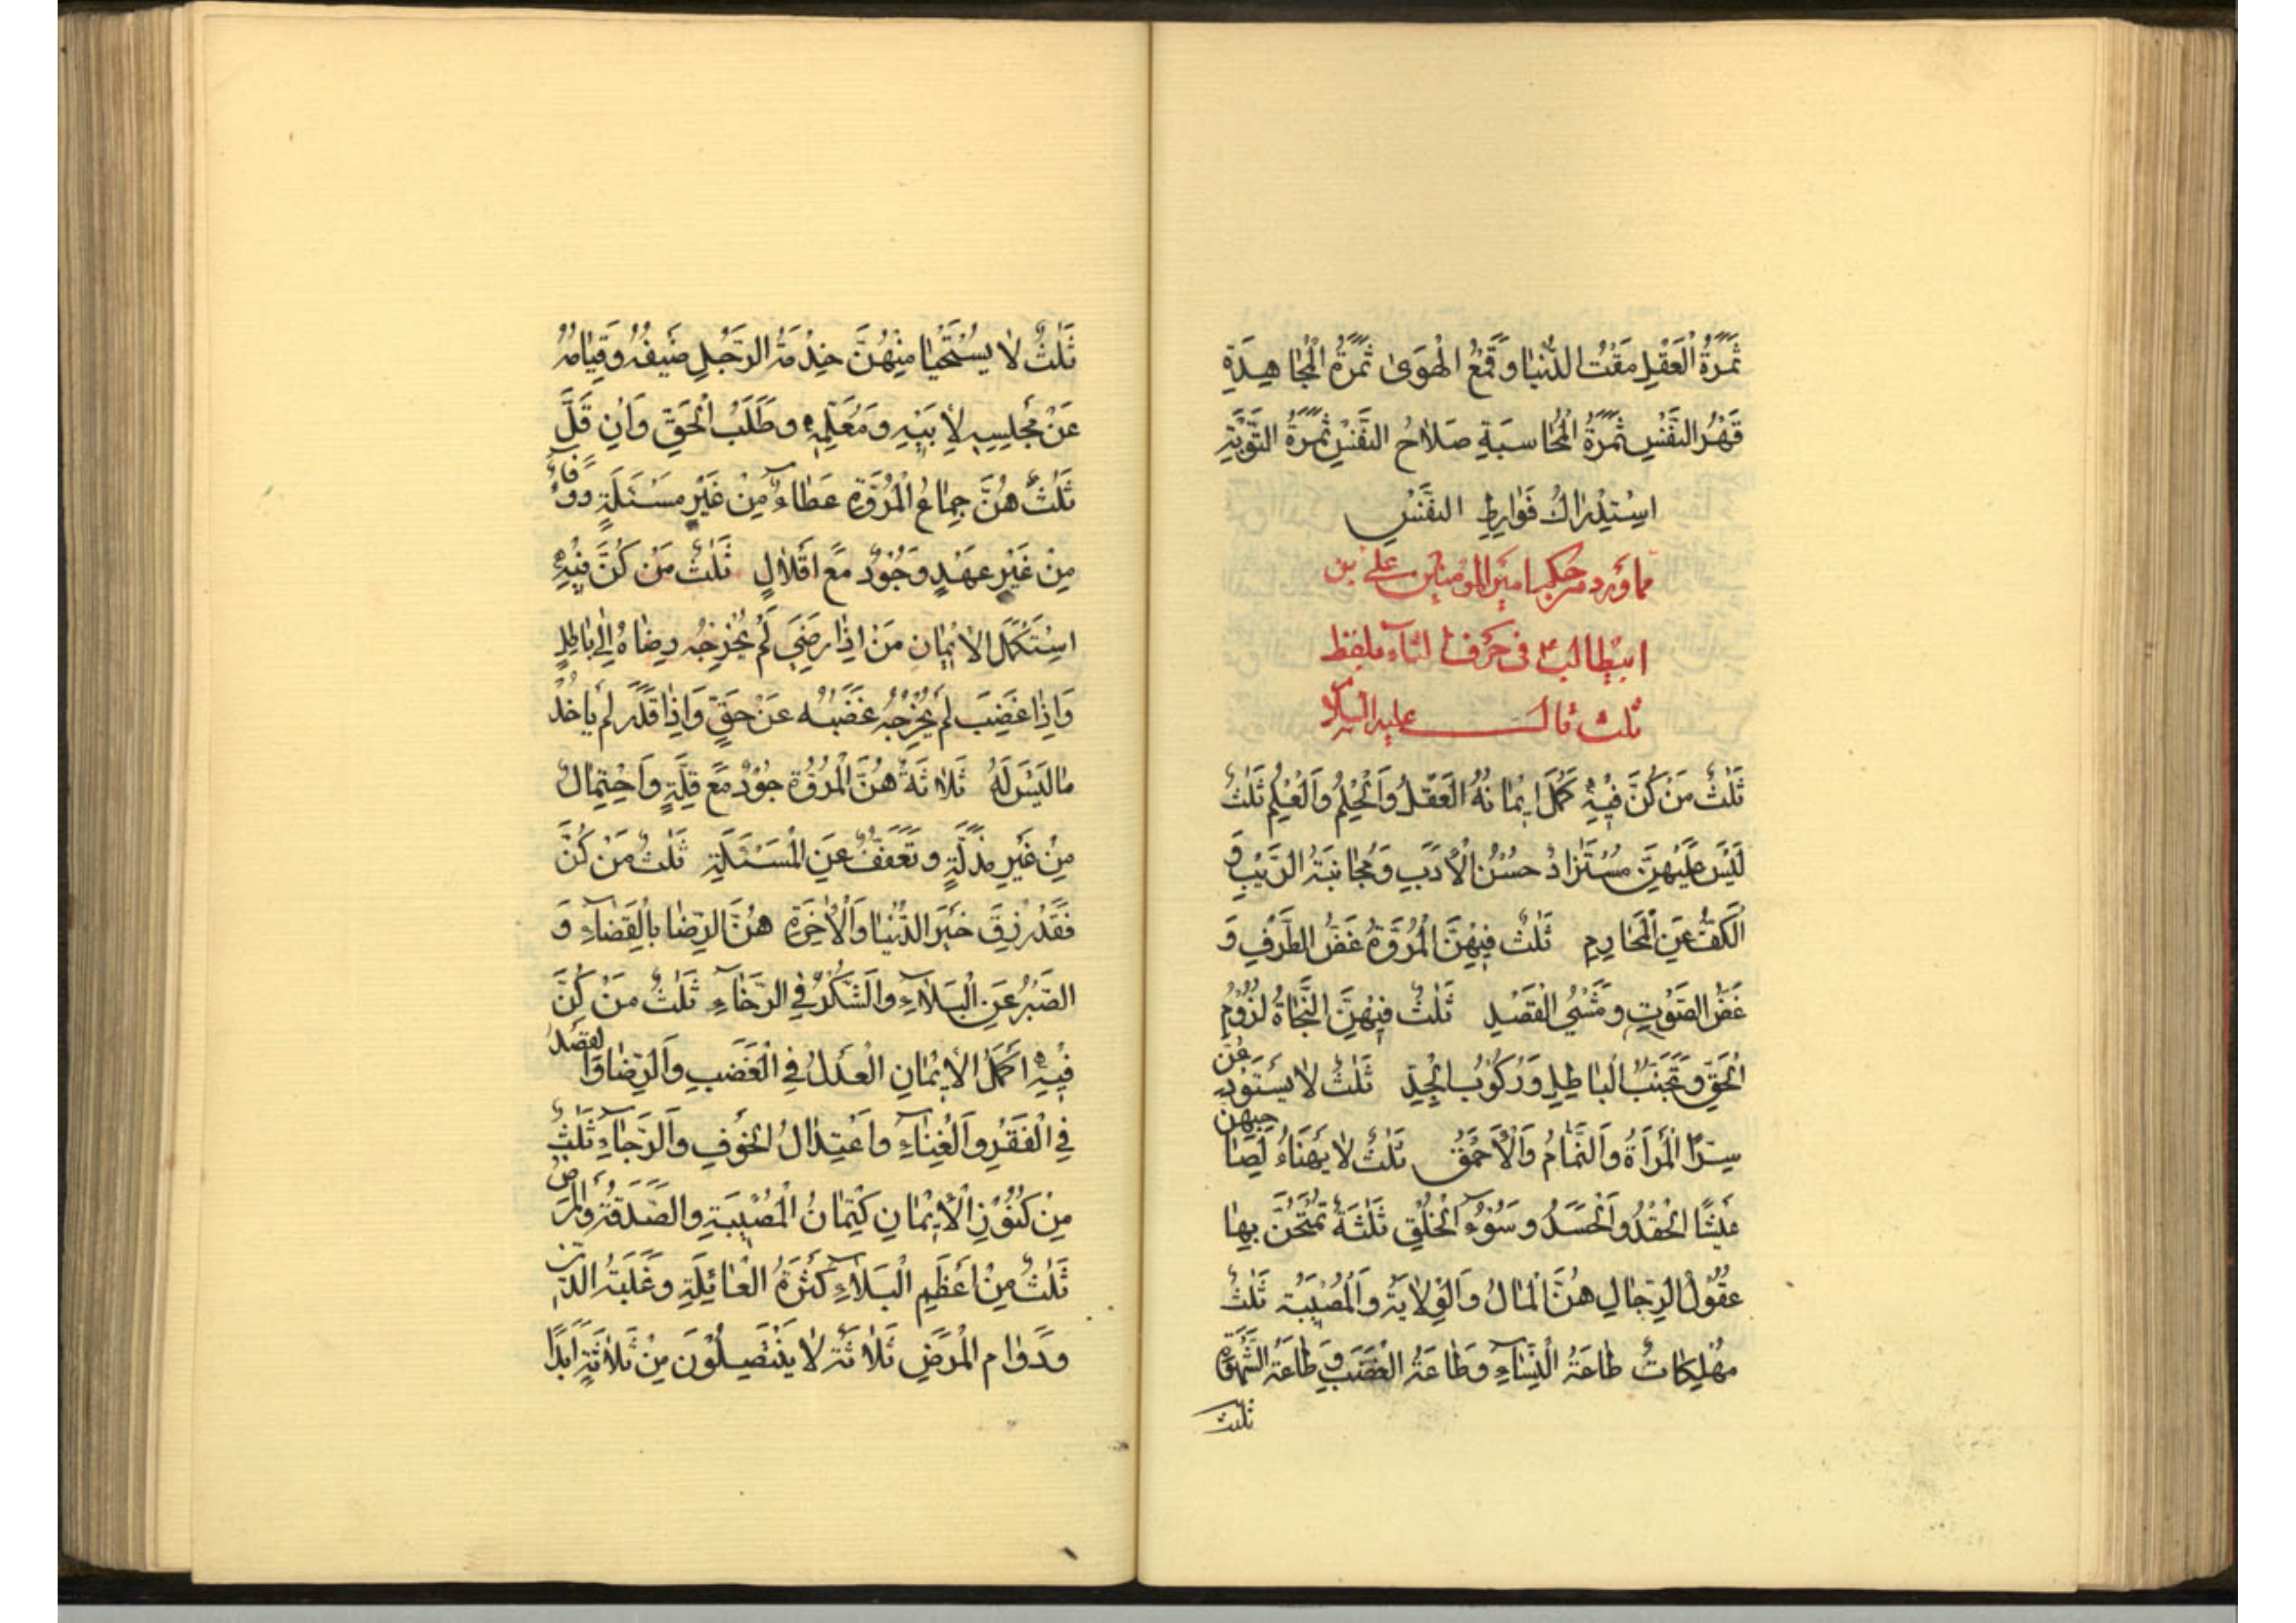 ثَمَرَةُ الْعَقْلِ مَقْتُ الدُّنْيَا وَقَمْعُ الْهَوَىٰ ثَمَرَةُ الْمُجَاهِدَةِ
قَهْرُ النَّفْسِ ثَمَرَةُ الْمُحَاسَبَةِ صَلَاحُ النَّفْسِ ثَمَرَةُ التَّوْبَةِ
اسْتِدْرَاكُ فَوَارِطِ النَّفْسِ
مما ورد من حكم امير المؤمنين على بن
ابيطالب فى حرف الثاء بلفظ
ثلث قال عليه السلام
ثَلٰثٌ مَنْ كُنَّ فِيهِ كَمُلَ اِيمَانُهُ الْعَقْلُ وَالْحِلْمُ وَالْعِلْمُ ثَلٰثٌ
لَيْسَ عَلَيْهِنَّ مُسْتَزَادٌ حُسْنُ الْأَدَبِ وَمُجَانَبَةُ الرَّيْبِ وَ
الْكَفُّ عَنِ الْمَحَارِمِ ثَلٰثٌ فِيهِنَّ الْمُرُوَّةُ غَضُّ الطَّرْفِ وَ
غَضُّ الصَّوْتِ وَمَشْيُ الْقَصْدِ ثَلٰثٌ فِيهِنَّ النَّجَاةُ لُزُومُ
الْحَقِّ وَتَجَنُّبُ الْبَاطِلِ وَرُكُوبُ الْجِدِّ ثَلٰثٌ لَا يُسْتَوْدَعْنَ
سِرًّا الْمَرْأَةُ وَالنَّمَّامُ وَالْأَحْمَقُ ثَلٰثٌ لَا يَهْنَاءُ لِصَاحِبِهِنَّ
عَيْشًا الْحِقْدُ وَالْحَسَدُ وَسُوءُ الْخُلْقِ ثَلٰثَةٌ تُمْتَحَنُ بِهَا
عُقُولُ الرِّجَالِ هُنَّ الْمَالُ وَالْوِلَايَةُ وَالْمُصِيبَةُ ثَلٰثٌ
مُهْلِكَاتٌ طَاعَةُ النِّسَاءِ وَطَاعَةُ الْغَضَبِ وَطَاعَةُ الشَّهْوَةِ
ثلث
ثَلٰثٌ لَا يُسْتَحْيَا مِنْهُنَّ خِدْمَةُ الرَّجُلِ ضَيْفَهُ وَقِيَامُهُ
عَنْ مَجْلِسِهِ لِأَبِيهِ وَمُعَلِّمِهِ وَطَلَبُ الْحَقِّ وَاِنْ قَلَّ
ثَلٰثٌ هُنَّ جِمَاعُ الْمُرُوَّةِ عَطَاءٌ مِنْ غَيْرِ مَسْئَلَةٍ وَوَفَاءٌ
مِنْ غَيْرِ عَهْدٍ وَجُودٌ مَعَ اِقْلَالٍ ثَلٰثٌ مَنْ كُنَّ فِيهِ
اسْتَكْمَلَ الْاِيمَانَ مَنْ اِذَا رَضِيَ لَمْ يُخْرِجْهُ رِضَاهُ اِلٰى بَاطِلٍ
وَاِذَا غَضِبَ لَمْ يُخْرِجْهُ غَضَبُهُ عَنْ حَقٍّ وَاِذَا قَدَرَ لَمْ يَاْخُذْ
مَا لَيْسَ لَهُ ثَلَاثَةٌ هُنَّ الْمُرُوَّةُ جُودٌ مَعَ قِلَّةٍ وَاحْتِمَالٌ
مِنْ غَيْرِ مَذَلَّةٍ وَتَعَفُّفٌ عَنِ الْمَسْئَلَةِ ثَلٰثٌ مَنْ كُنَّ
فَقَدْ رُزِقَ خَيْرَ الدُّنْيَا وَالْاٰخِرَةِ هُنَّ الرِّضَا بِالْقَضَاءِ وَ
الصَّبْرُ عَنِ الْبَلَاءِ وَالشُّكْرُ فِي الرَّخَاءِ ثَلٰثٌ مَنْ كُنَّ
فِيهِ اَكْمَلَ الْاِيمَانَ الْعَدْلُ فِي الْغَضَبِ وَالرِّضَا وَالْقَصْدُ
فِي الْفَقْرِ وَالْغِنَاءِ وَاعْتِدَالُ الْخَوْفِ وَالرَّجَاءِ ثَلٰثٌ
مِنْ كُنُوزِ الْاِيمَانِ كِتْمَانُ الْمُصِيبَةِ وَالصَّدَقَةُ وَالْمَرَضُ
ثَلٰثٌ مِنْ اَعْظَمِ الْبَلَاءِ كَثْرَةُ الْعَائِلَةِ وَغَلَبَةُ الدَّيْنِ
وَدَوَامُ الْمَرَضِ ثَلَاثَةٌ لَا يَنْتَصِفُونَ مِنْ ثَلَاثَةٍ اَبَدًا